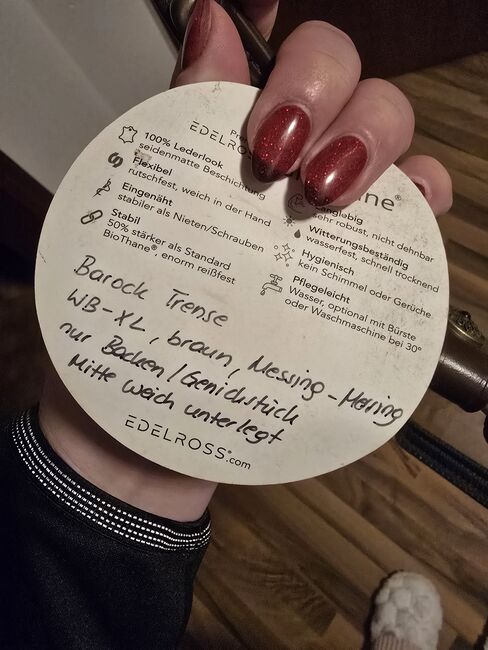 EDELROSS
100% Lederlook
seidenmatte Beschichtung
Flexibel
rutschfest, weich in der Hand
Eingenäht
stabiler als Nieten/Schrauben
Stabil
50% stärker als Standard
BioThane®, enorm reißfest
sehr robust, nicht dehnbar
Witterungsbeständig
wasserfest, schnell trocknend
Hygienisch
kein Schimmel oder Gerüche
Pflegeleicht
Wasser, optional mit Bürste
oder Waschmaschine bei 30°
Barock Trense
WB-XL, braun, Messing-
nur Backen/Genickstück
Mitte weich unterlegt
EDELROSS®.com